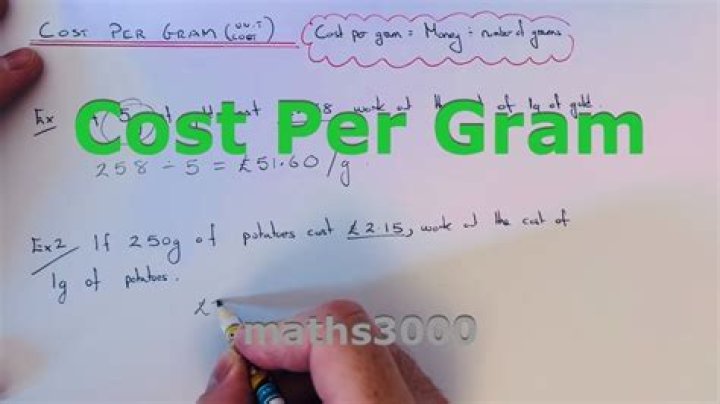 COST PER GRAM (UNIT COST)
Cost per gram = Money ÷ number of grams
Cost Per Gram
Ex 5 of 1g of gold.
258 ÷ 5 = £51.60/g.
Ex2 If 250g of potatoes cost £2.15, work out the cost of
1g of potatoes.
£
maths3000